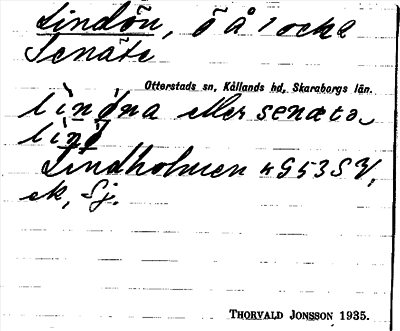 Lindön, ö å 1 ocks
Senäte
Otterstads sn, Kållands hd, Skaraborgs län.
eller senäte
Lindholmen 4G53SV,
ek, Sj.
THORVALD JONSSON 1935.